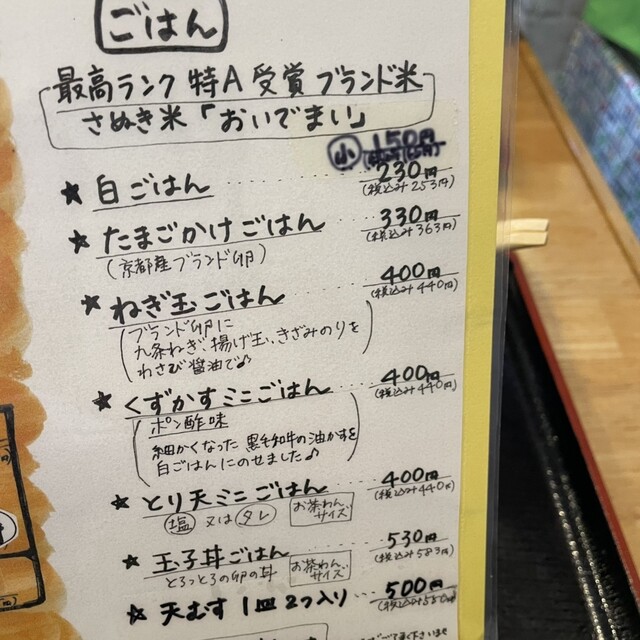 ごはん
最高ランク 特A 受賞 ブランド米
さぬき米「おいでまい」
小 150円
★ 白ごはん 230円
(税込み253円)
★ たまごかけごはん 330円
(税込み363円)
(京都産ブランド卵)
★ ねぎ玉ごはん 400円
(税込み440円)
(ブランド卵に
九条ねぎ、揚げ玉、きざみのりを
わさび醤油で♪)
★ くずかすミニごはん 400円
(税込み440円)
(ポン酢味
細かくなった 黒毛和牛の油かすを
白ごはんにのせました♪)
★ とり天ミニごはん 400円
(税込み440円)
塩 又は タレ お茶わんサイズ
★ 玉子丼ごはん 530円
(税込み583円)
とろっとろの卵の丼 お茶わんサイズ
★ 天むす 1皿2つ入り 500円